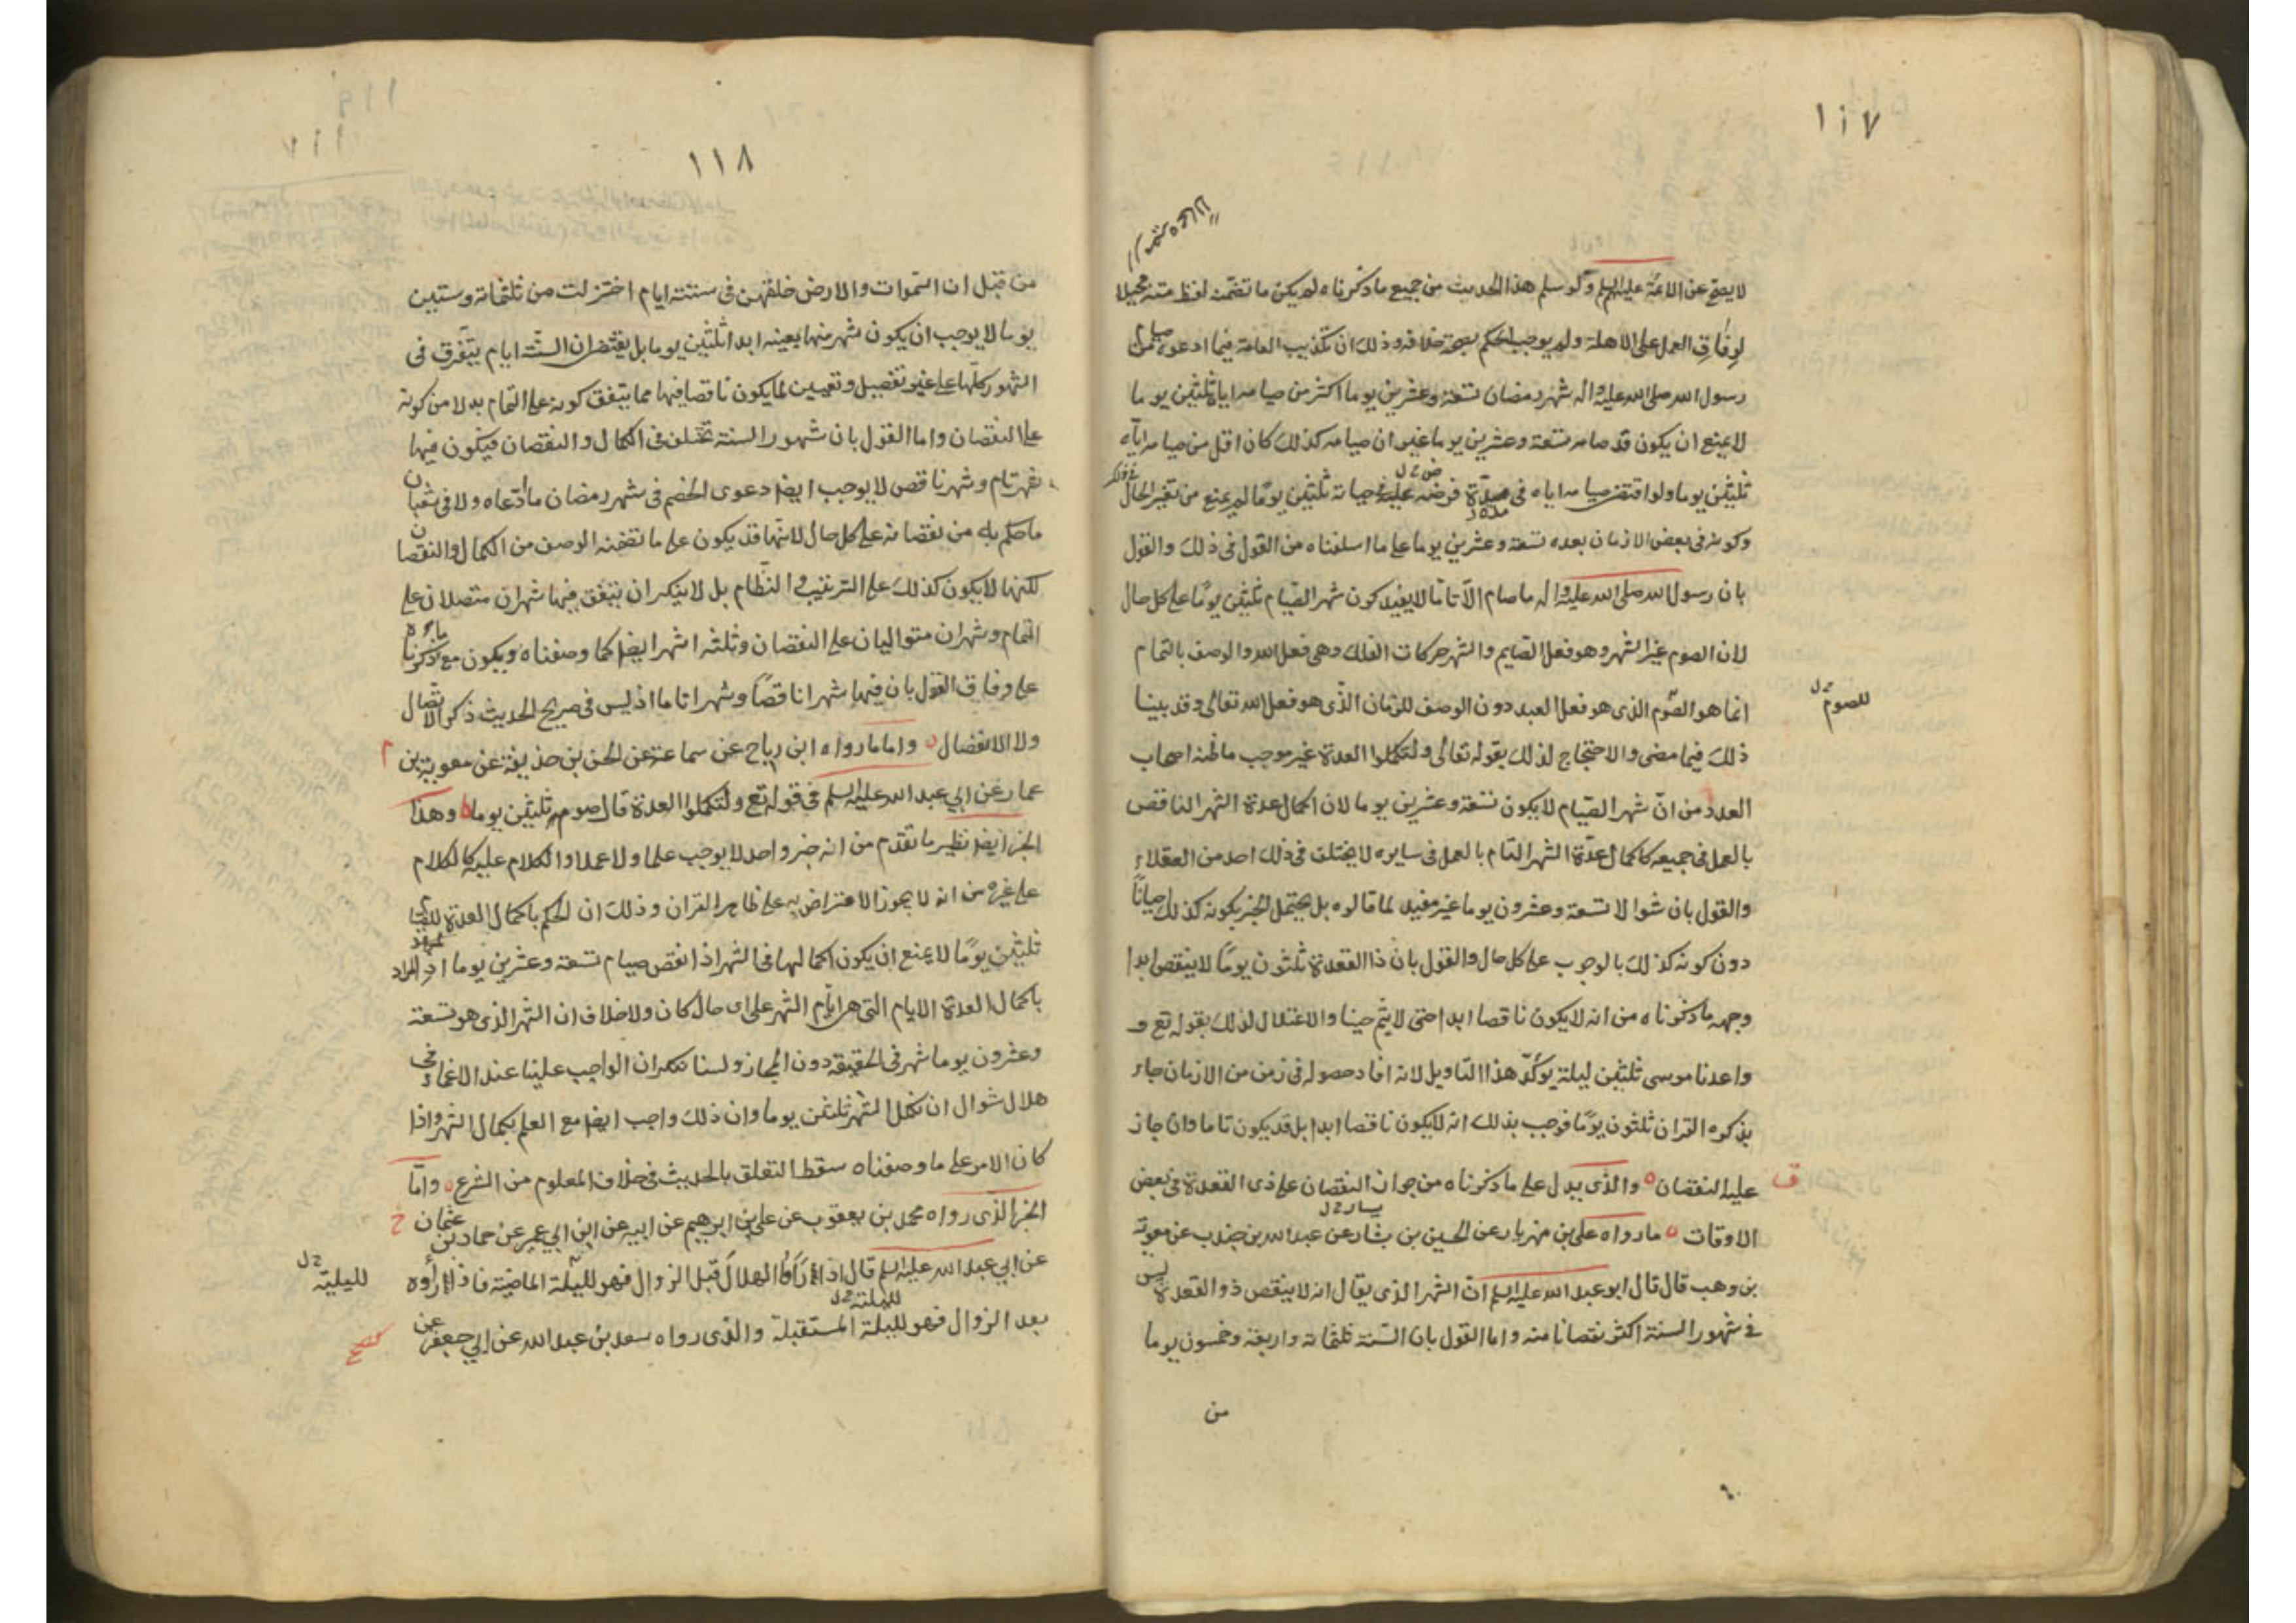 ١١٧
لا يصح عن الائمة عليهم السلم ولو سلم هذا الحديث من جميع ما ذكرناه لم يكن ما تضمنه لفظ متنه محيلا
لوفاق العمل على الاهلة ولم يوجب الحكم بصحة خلافه وذلك ان تكذيب العامة فيما ادعوه من صيام
رسول الله صلى الله عليه واله شهر رمضان تسعة وعشرين يوما اكثر من صيامه اياه ثلثين يوما
لا يمنع ان يكون قد صامه تسعة وعشرين يوما غير ان صيامه كذلك كان اقل من صيامه اياه
ثلثين يوما ولو اقتضى صيامه اياه في مدة فرضه عليه حياته ثلثين يوما لم يمنع من تغير الحال
وكونه في بعض الازمان بعده تسعة وعشرين يوما على ما اسلفناه من القول في ذلك والقول
بان رسول الله صلى الله عليه واله ما صام الا تاما لا يفيد كون شهر الصيام ثلثين يوما على كل حال
لان الصوم غير الشهر وهو فعل الصايم والشهر حركات الفلك وهي فعل الله والوصف بالتمام
انما هو الصوم الذى هو فعل العبد دون الوصف للزمان الذى هو فعل الله تعالى وقد بينا
للصوم خ ل
ذلك فيما مضى والاحتجاج لذلك بقوله تعالى ولتكملوا العدة غير موجب ما ظنه اصحاب
العدد من ان شهر الصيام لا يكون تسعة وعشرين يوما لان اكمال عدة الشهر الناقص
بالعمل في جميعه كاكمال عدة الشهر التام بالعمل في سايره لا يختلف في ذلك احد من العقلاء
والقول بان شوالا تسعة وعشرون يوما غير مفيد لما قالوه بل يحتمل الخبر بكونه كذلك احيانا
دون كونه كذلك بالوجوب على كل حال والقول بان ذا القعدة ثلثون يوما لا ينقص ابدا
وجهه ما ذكرناه من انه لا يكون ناقصا ابدا حتى لا يتم حينا والاعتلال لذلك بقوله تع و
واعدنا موسى ثلثين ليلة يؤكد هذا التاويل لانه افاد حصوله في زمن من الازمان جاء
بذكره القران ثلثون يوما فوجب بذلك انه لا يكون ناقصا ابدا بل قد يكون تاما وان جاز
عليه النقصان والذى يدل على ما ذكرناه من جواز النقصان على ذى القعدة في بعض
الاوقات ما رواه على بن مهزيار عن الحسين بن بشار عن عبد الله بن جندب عن معوية
بن وهب قال قال ابو عبد الله عليه السلم ان الشهر الذى يقال انه لا ينقص ذو القعدة ليس
في شهور السنة اكثر نقصانا منه واما القول بان السنة ثلثمائة واربعة وخمسون يوما
من
١١٨
من قبل ان السموات والارض خلقهن في ستة ايام اختزلت من ثلثمائة وستين
يوما لا يوجب ان يكون شهر منها بعينه ابدا ثلثين يوما بل يقتضى ان الستة ايام يتفرق في
الشهور كلها على غير تفصيل وتعيين لما يكون ناقصا فيها مما يتفق كونه على التمام بدلا من كونه
على النقصان واما القول بان شهور السنة تختلف في الكمال والنقصان فيكون فيها
شهر تام وشهر ناقص لا يوجب ايضا دعوى الخصم في شهر رمضان ما ادعاه ولا في شعبان
ما حكم به من نقصانه على كل حال لانها قد يكون على ما تضمنه الوصف من الكمال والنقصان
لكنها لا يكون كذلك على الترتيب والنظام بل لا ينكر ان يتفق فيها شهران متصلان على
التمام وشهران متواليان على النقصان وثلثة اشهر ايضا كما وصفناه ويكون مع ما ذكرناه
على وفاق القول بان فيها شهرا ناقصا وشهرا تاما اذ ليس في صريح الحديث ذكر الاتصال
ولا الانفصال واما ما رواه ابن رباح عن سماعة عن الحسن بن حذيفة عن معوية بن
عمار عن ابي عبد الله عليه السلم في قوله تع ولتكملوا العدة قال صوم ثلثين يوما وهذا
الخبر ايضا نظير ما تقدم من انه خبر واحد لا يوجب علما ولا عملا والكلام عليه كالكلام
على غيره من انه لا يجوز الاعتراض به على ظاهر القران وذلك ان الحكم باكمال العدة للصيام
ثلثين يوما لا يمنع ان يكون اكمالها في الشهر اذا نقص صيام تسعة وعشرين يوما اذ المراد
باكمال العدة الايام التى هى ايام الشهر على اى حال كان ولا خلاف ان الشهر الذى هو تسعة
وعشرون يوما شهر في الحقيقة دون المجاز ولسنا ننكر ان الواجب علينا عند الاغماء في
هلال شوال ان نكمل الشهر ثلثين يوما وان ذلك واجب ايضا مع العلم بكمال الشهر واذا
كان الامر على ما وصفناه سقط التعلق بالحديث في خلاف المعلوم من الشرع واما
الخبر الذى رواه محمد بن يعقوب عن على بن ابرهيم عن ابيه عن ابن ابي عمير عن حماد بن عثمان
عن ابي عبد الله عليه السلم قال اذا رأوا الهلال قبل الزوال فهو لليلة الماضية فاذا رأوه
لليلية خ ل
بعد الزوال فهو لليلة المستقبلة والذى رواه سعد بن عبد الله عن ابي جعفر عن